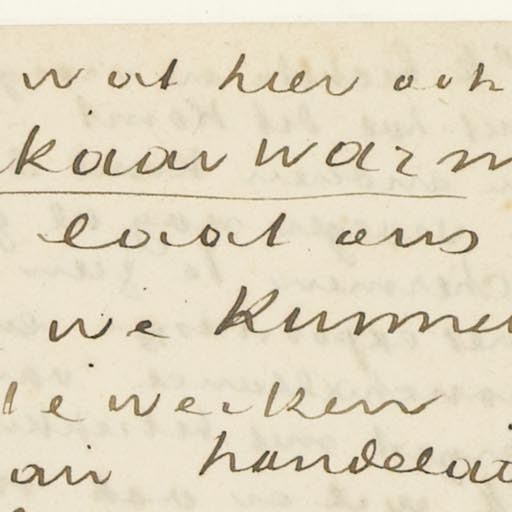 wat hier ook
kaar warm
laat ons
we kunnen
te werken
aan handelaa